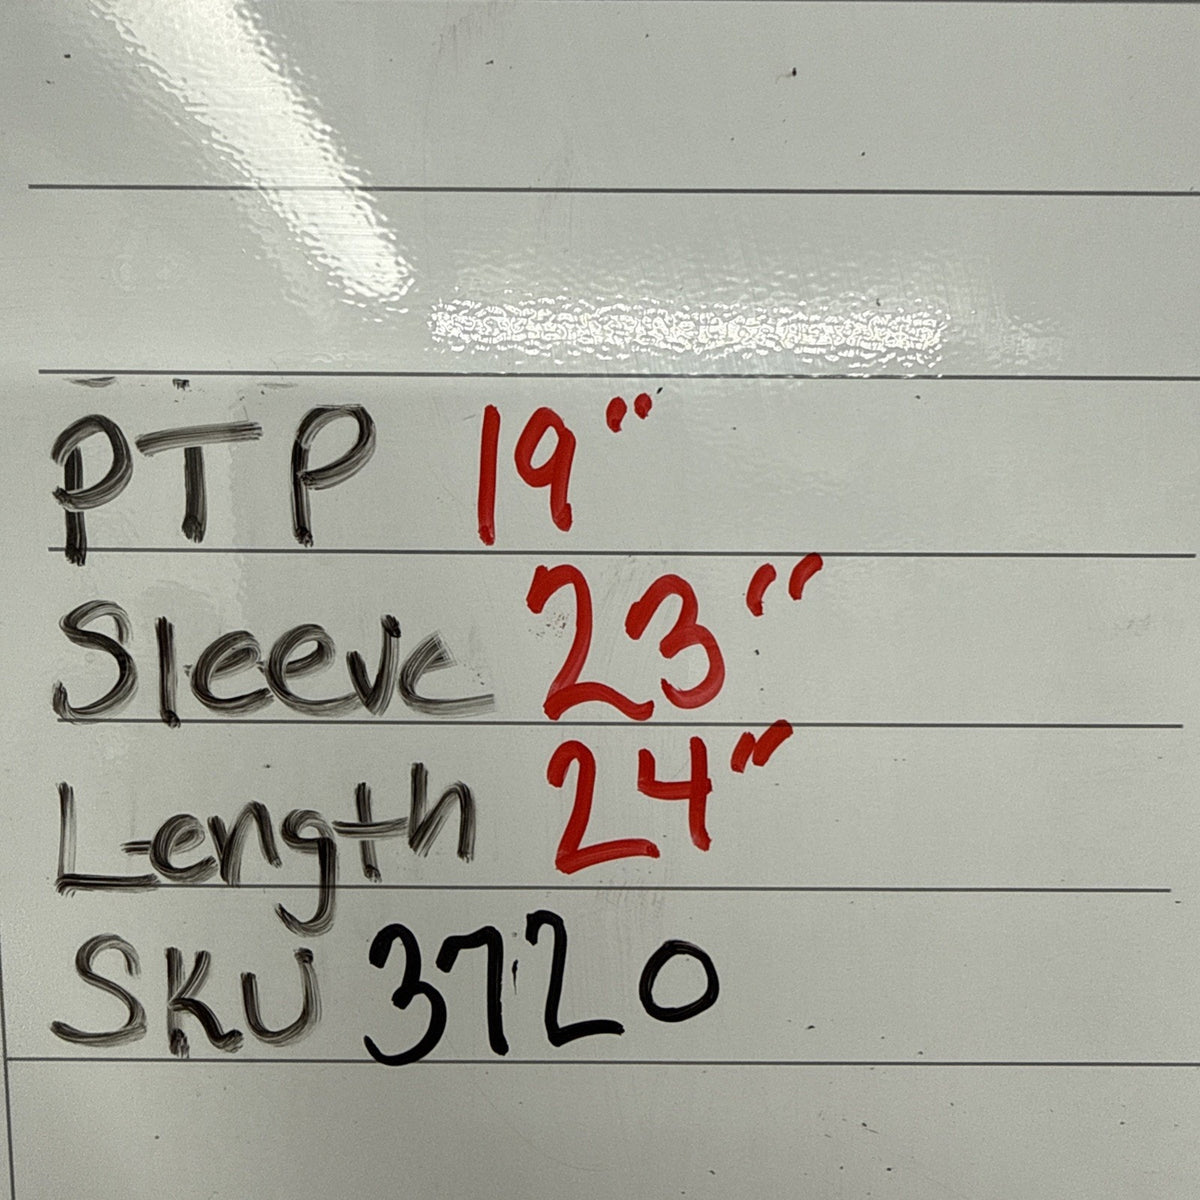 PTP 19"
Sleeve 23"
Length 24"
SKU 3720